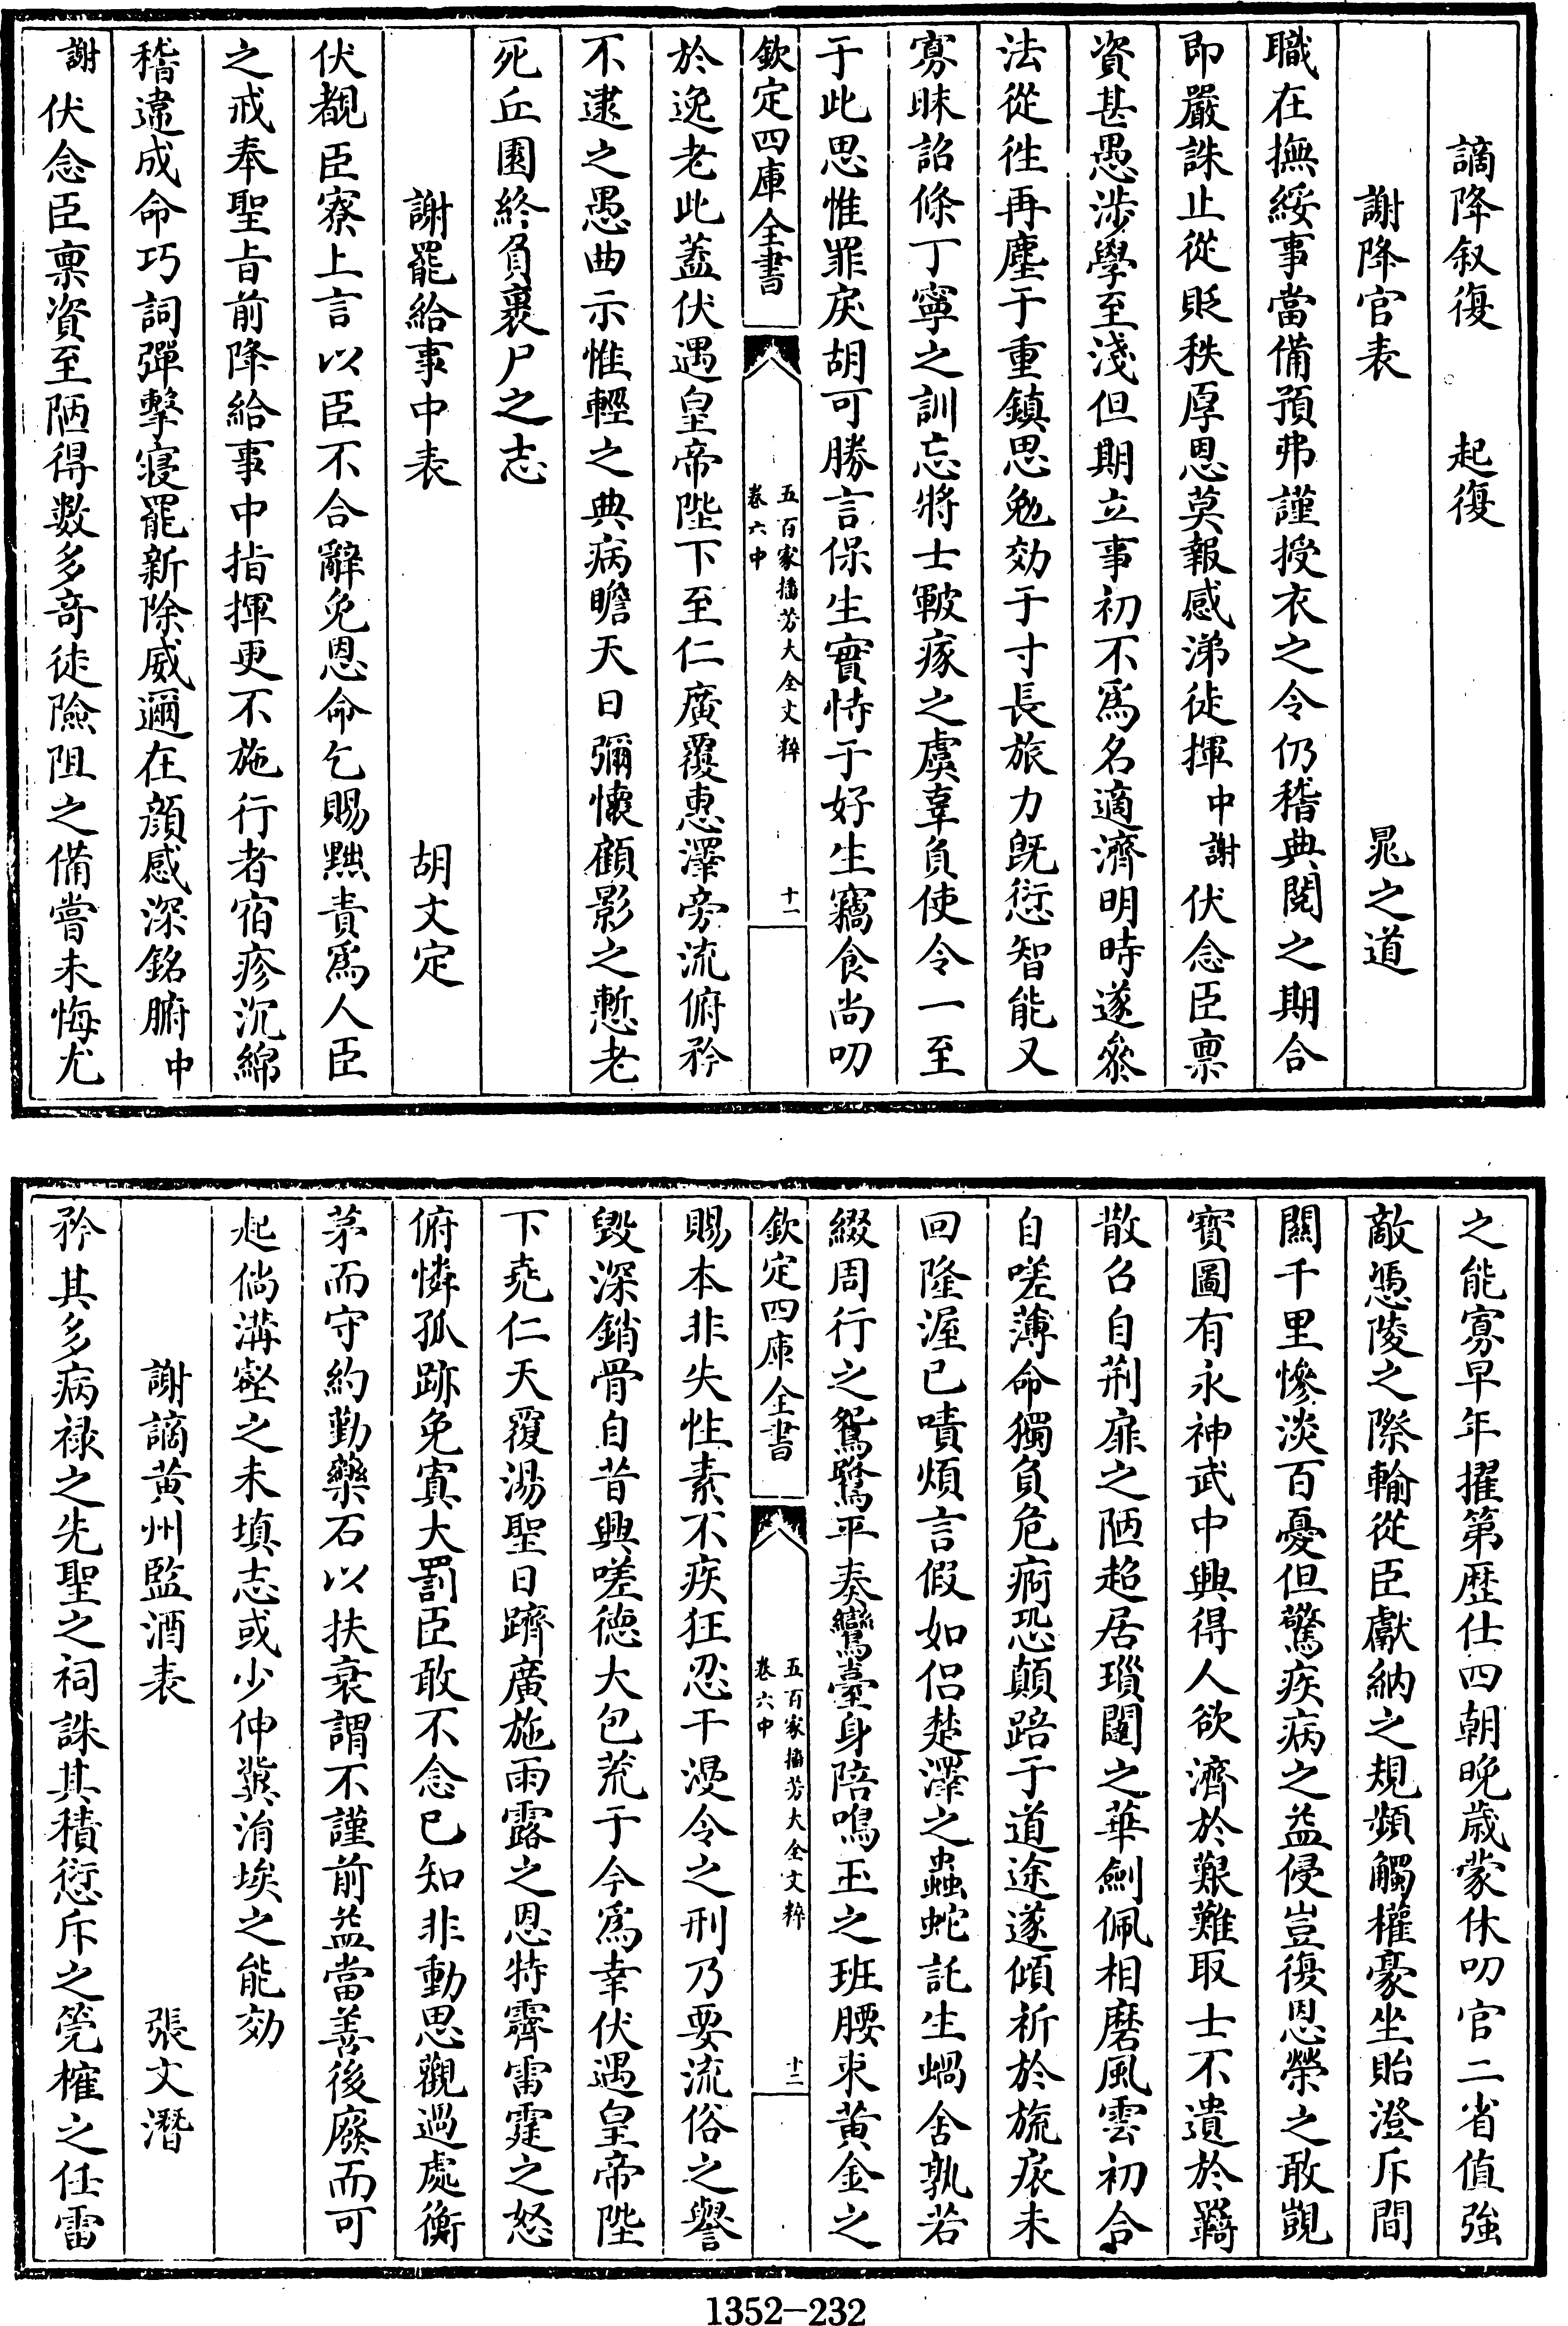 謫降叙復　　起復
謝降官表　　晁之道
職在撫綏事當備預弗謹授衣之令仍稽典閱之期合
即嚴誅止從貶秩厚恩莫報感涕徒揮中謝伏念臣稟
資甚愚涉學至淺但期立事初不爲名適濟明時遂參
法從徃再塵于重鎮思勉効于寸長旅力旣愆智能又
寡昧詔條丁寧之訓忘將士皸瘃之虞辜負使令一至
于此思惟罪戾胡可勝言保生實恃于好生竊食尚叨
欽定四庫全書
五百家播芳大全文粹
卷六中
十一
於逸老此蓋伏遇皇帝陛下至仁廣覆惠澤旁流俯矜
不逮之愚曲示惟輕之典病瞻天日彌懷顧影之慙老
死丘園終負裹尸之志
謝罷給事中表　　胡文定
伏覩臣寮上言以臣不合辭免恩命乞賜黜責爲人臣
之戒奉聖旨前降給事中指揮更不施行者宿疹沉綿
稽違成命巧詞彈擊寢罷新除威邇在顔感深銘腑中
謝伏念臣稟資至陋得數多奇徒險阻之備嘗未悔尤
之能寡早年擢第歴仕四朝晩歳蒙休叨官二省值強
敵憑陵之際輸從臣獻納之規頻觸權豪坐貽澄斥間
關千里慘淡百憂但驚疾病之益侵豈復恩榮之敢覬
寳圖有永神武中興得人欲濟於艱難取士不遺於羈
散召自荆扉之陋超居瑣闥之華劍佩相磨風雲初合
自嗟薄命獨負危痾恐顛踣于道途遂傾祈於旒扆未
回隆渥已嘖煩言假如侣楚澤之蟲蛇託生蝸舍孰若
綴周行之鴛鷺平奏鸞臺身陪鳴玉之班腰束黄金之
欽定四庫全書
五百家播芳大全文粹
卷六中
十二
賜本非失性素不疾狂忍干漫令之刑乃要流俗之譽
毁深銷骨自昔興嗟德大包荒于今爲幸伏遇皇帝陛
下堯仁天覆湯聖日躋廣施雨露之恩特霽雷霆之怒
俯憐孤跡免寘大罰臣敢不念已知非動思觀過處衡
茅而守約勤藥石以扶衰謂不謹前益當善後廢而可
起倘溝壑之未填志或少伸冀涓埃之能効
謝謫黄州監酒表　　張文潛
矜其多病禄之先聖之祠誅其積愆斥之筦榷之任雷
1352-232